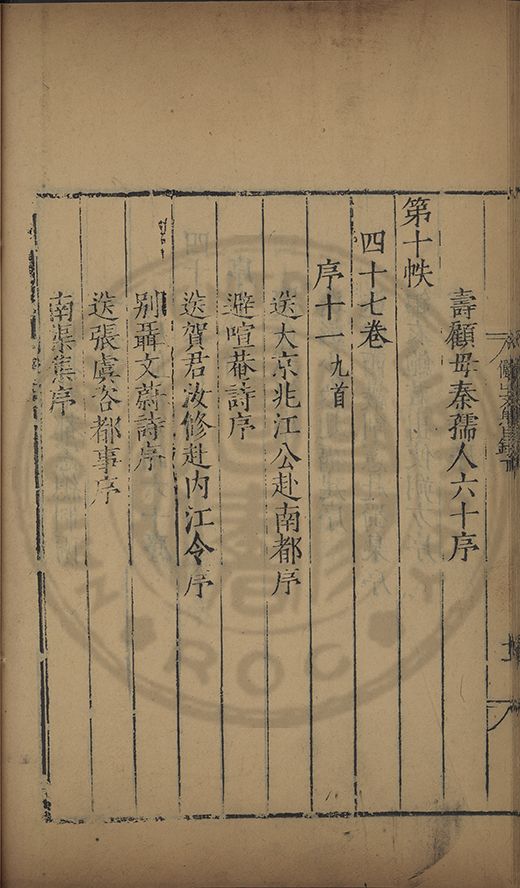 壽顧母秦孺人六十序
第十帙
四十七卷
序十一九首
送大京兆江公赴南都序
避喧菴詩序
送賀君汝修赴内江令序
别聶文蔚詩序
送張虞咨都事序
南渠集序